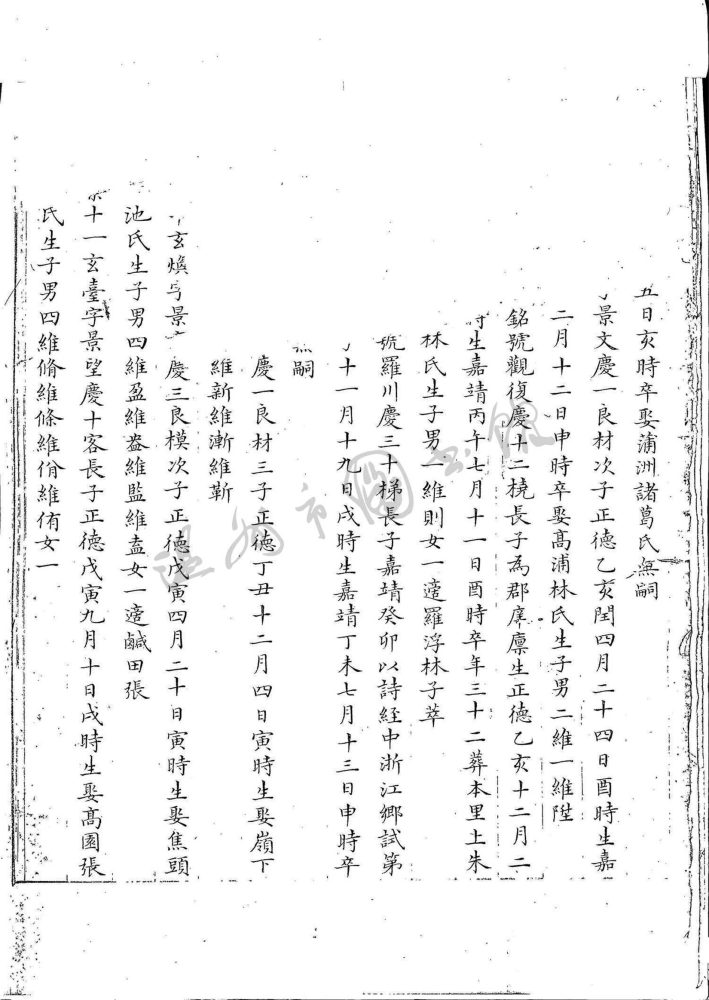 五日亥時卒娶蒲洲諸葛氏無嗣
景文慶一良材次子正德乙亥閏四月二十四日酉時生嘉
二月十二日申時卒娶髙浦林氏生子男二維一維陞
銘號觀復慶十二橈長子為郡庠廩生正德乙亥十二月二
時生嘉靖丙午七月十一日酉時卒年三十二葬本里上朱
林氏生子男一維則女一適羅浮林子萃
號羅川慶三十梯長子嘉靖癸卯以詩経中浙江鄉試第
十一月十九日戌時生嘉靖丁未七月十三日申時卒
無嗣
慶一良材三子正德丁丑十二月四日寅時生娶嶺下
維新維漸維蘄
玄煥字景 慶三良模次子正德戊寅四月二十日寅時生娶焦頭
池氏生子男四維盈維盎維監維盍女一適鹹田張
十一玄臺字景望慶十客長子正德戊寅九月十日戌時生娶髙園張
氏生子男四維脩維條維佾維侑女一
温州市圖書館